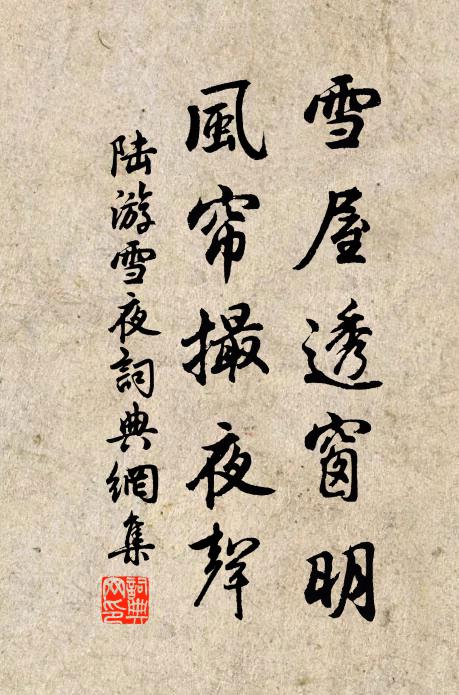 雪屋透窗明
風帘撮夜聲
陆游雪夜詞典網集
詞典
网印